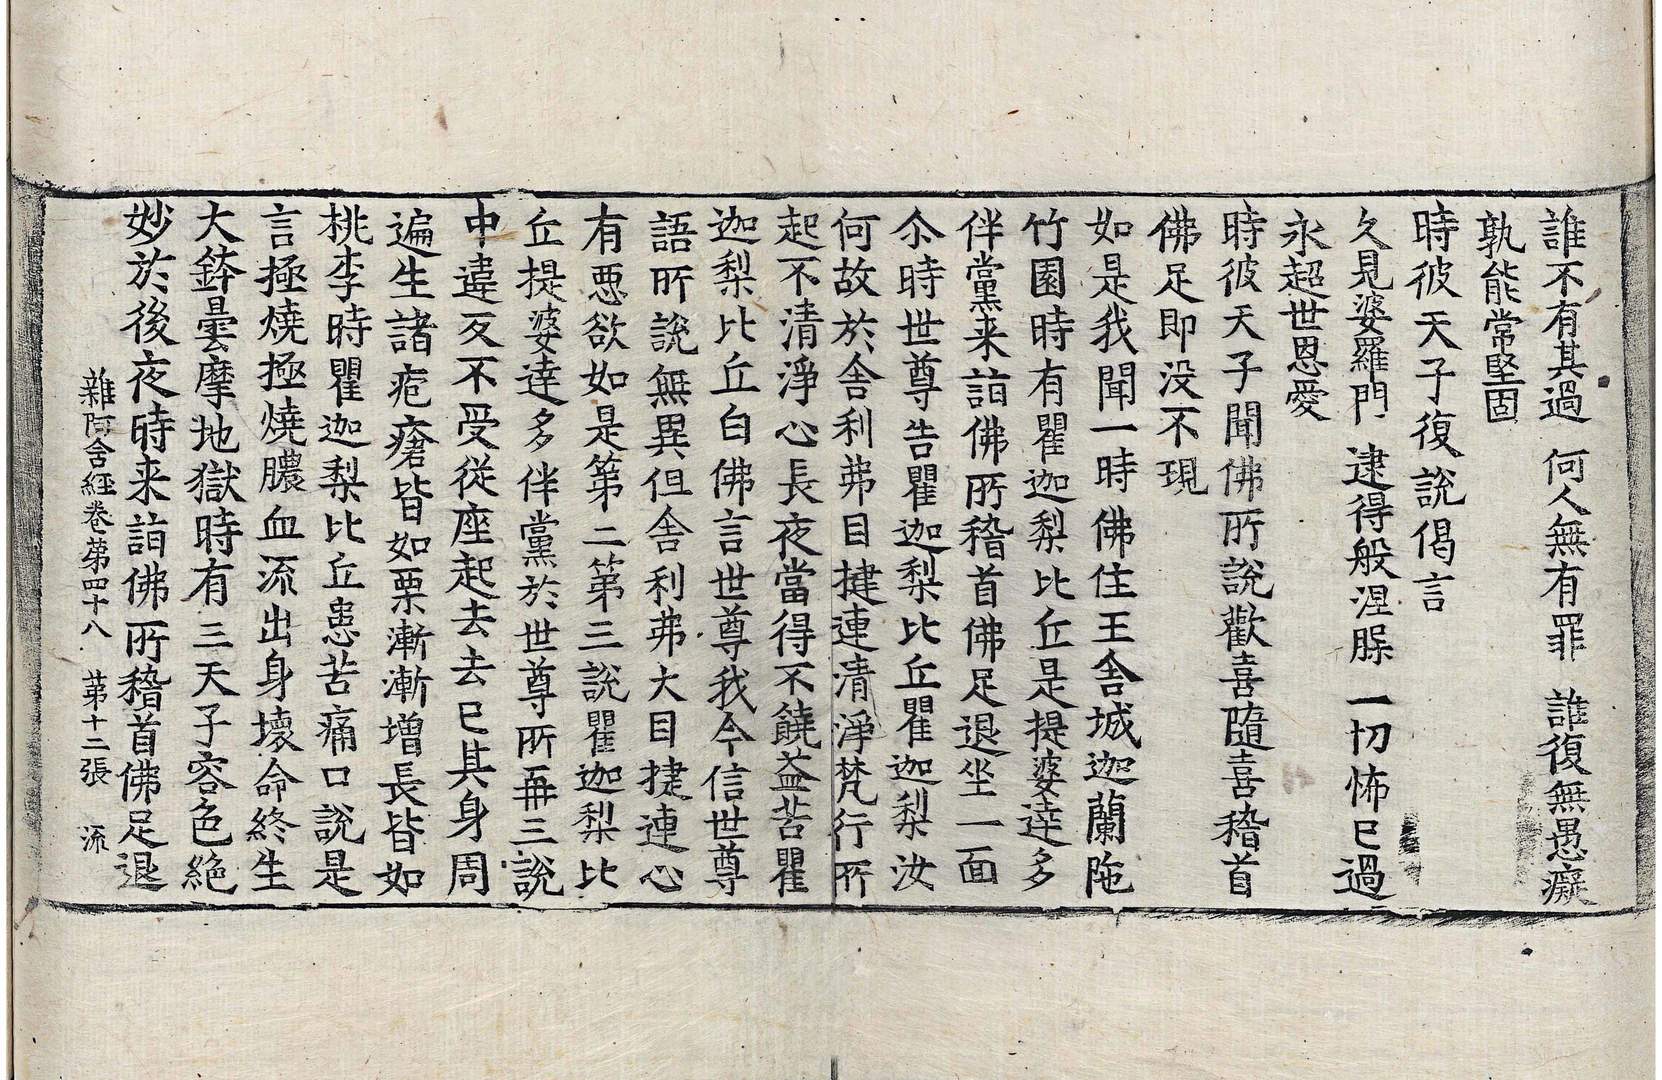 誰不有其過 何人無有罪 誰復無愚癡
孰能常堅固
時彼天子復說偈言
久見婆羅門 逮得般涅槃 一切怖已過
永超世恩愛
時彼天子聞佛所說歡喜隨喜稽首
佛足即没不現
如是我聞一時佛住王舍城迦蘭陁
竹園時有瞿迦梨比丘是提婆達多
伴黨来詣佛所稽首佛足退坐一面
尒時世尊告瞿迦梨比丘瞿迦梨汝
何故於舍利弗目揵連清淨梵行所
起不清淨心長夜當得不饒益苦瞿
迦梨比丘白佛言世尊我今信世尊
語所說無異但舍利弗大目揵連心
有惡欲如是第二第三說瞿迦梨比
丘提婆達多伴黨於世尊所再三說
中違反不受從座起去去已其身周
遍生諸疱瘡皆如栗漸漸增長皆如
桃李時瞿迦梨比丘患苦痛口說是
言極燒極燒膿血流出身壞命終生
大鉢曇摩地獄時有三天子容色絶
妙於後夜時来詣佛所稽首佛足退
雜阿含經卷第四十八 第十二張 流